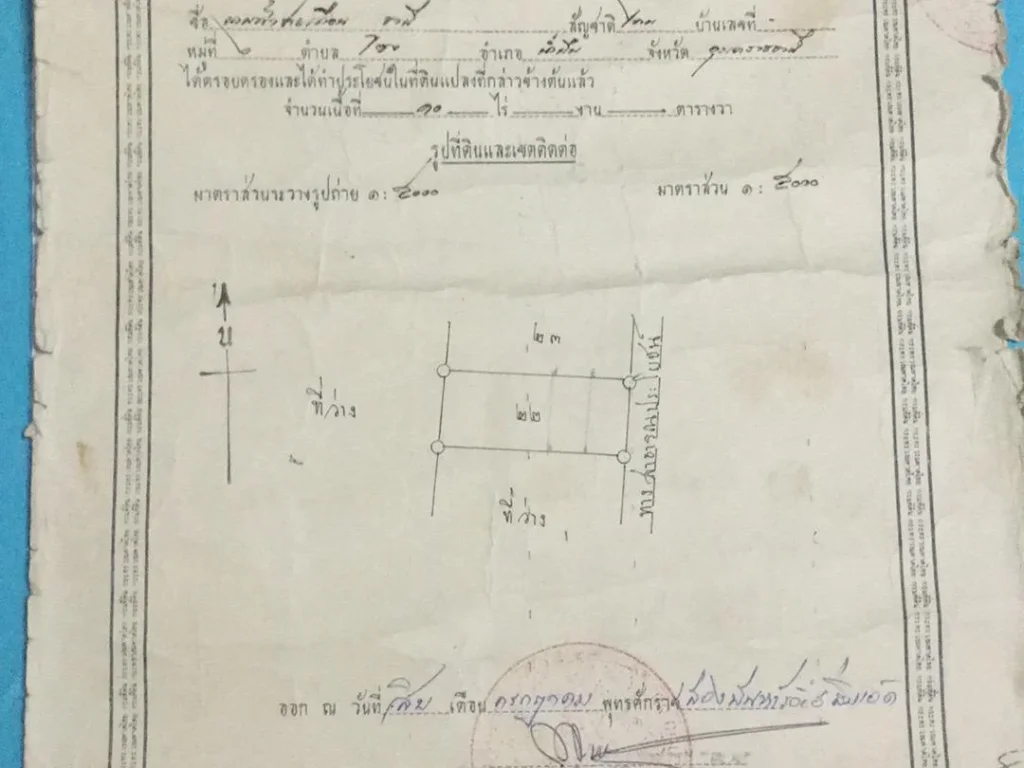 ชื่อ สัญชาติ ไทย บ้านเลขที่ -
หมู่ที่ ๖ ตำบล อำเภอ น้ำยืน จังหวัด อุบลราชธานี
ได้ครอบครองและได้ทำประโยชน์ในที่ดินแปลงที่กล่าวข้างต้นแล้ว
จำนวนเนื้อที่ ๑๐ ไร่ งาน ตารางวา
รูปที่ดินและเขตติดต่อ
มาตราส่วนระวางรูปถ่าย ๑ : ๕๐๐๐ มาตราส่วน ๑ : ๕๐๐๐
น
๒๓
ที่ว่าง
๒๒
ทางสาธารณประโยชน์
ที่ว่าง
ออก ณ วันที่ เดือน กรกฎาคม พุทธศักราช สองพันห้าร้อย